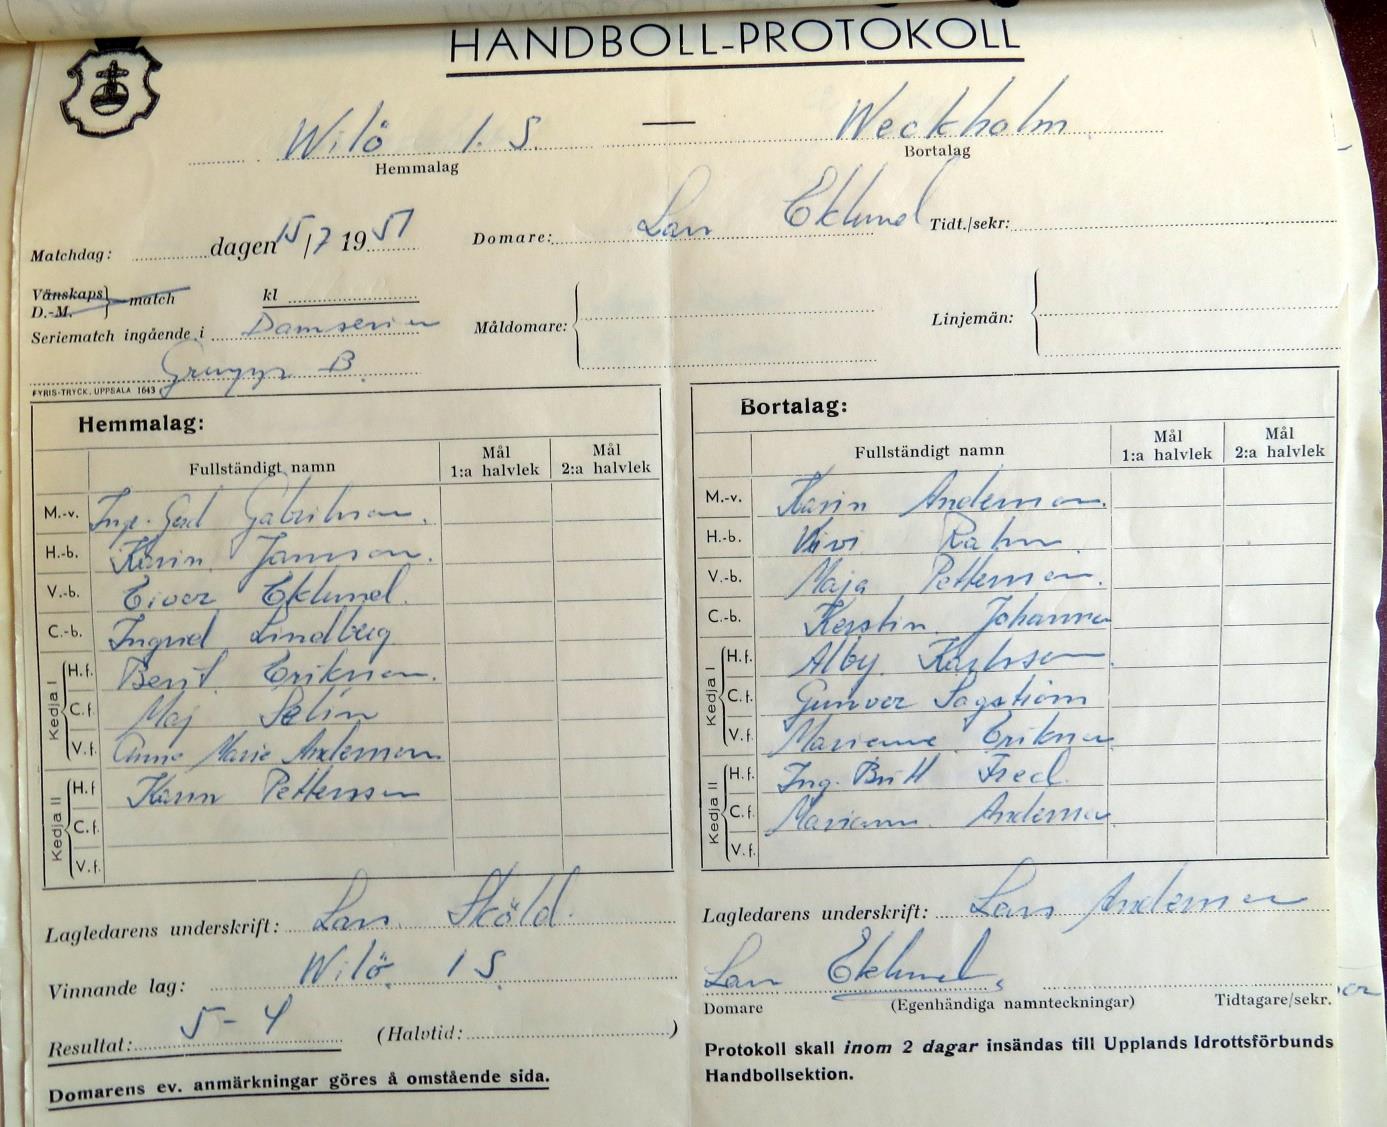 HANDBOLL-PROTOKOLL
Wilö I. S. — Weckholm
Hemmalag Bortalag
Matchdag: dagen 15/7 1951 Domare: Lars Eklund Tidt./sekr:
Vänskaps D.-M. } match kl
Seriematch ingående i Damserien Måldomare: Linjemän:
Grupp B.
FYRIS-TRYCK, UPPSALA 1643
Hemmalag:
Fullständigt namn Mål 1:a halvlek Mål 2:a halvlek
M.-v. Inge-Gerd Gabrielsson.
H.-b. Karin Jansson.
V.-b. Eivor Eklund.
C.-b. Ingrid Lindberg
Kedja I
H.f. Berit Eriksson.
C.f. Maj Selin
V.f. Anne Marie Andersson
Kedja II
H.f. Karin Pettersson
C.f.
V.f.
Lagledarens underskrift: Lars Sköld.
Vinnande lag: Wilö I S.
Resultat: 5-4 (Halvtid: )
Domarens ev. anmärkningar göres å omstående sida.
Bortalag:
Fullständigt namn Mål 1:a halvlek Mål 2:a halvlek
M.-v. Karin Andersson.
H.-b. Vivi Rahm.
V.-b. Maja Pettersson.
C.-b. Kerstin Johansson
Kedja I
H.f. Alby Karlsson
C.f. Gunvor Sagström
V.f. Marianne Eriksson
Kedja II
H.f. Ing-Britt Fred.
C.f. Mariann Andersson
V.f.
Lagledarens underskrift: Lars Andersson
Lars Eklund
Domare (Egenhändiga namnteckningar) Tidtagare/sekr.
Protokoll skall inom 2 dagar insändas till Upplands Idrottsförbunds
Handbollsektion.